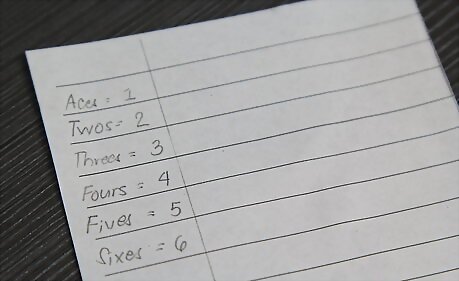 Aces = 1
Twos = 2
Threes = 3
Fours = 4
Fives = 5
Sixes = 6